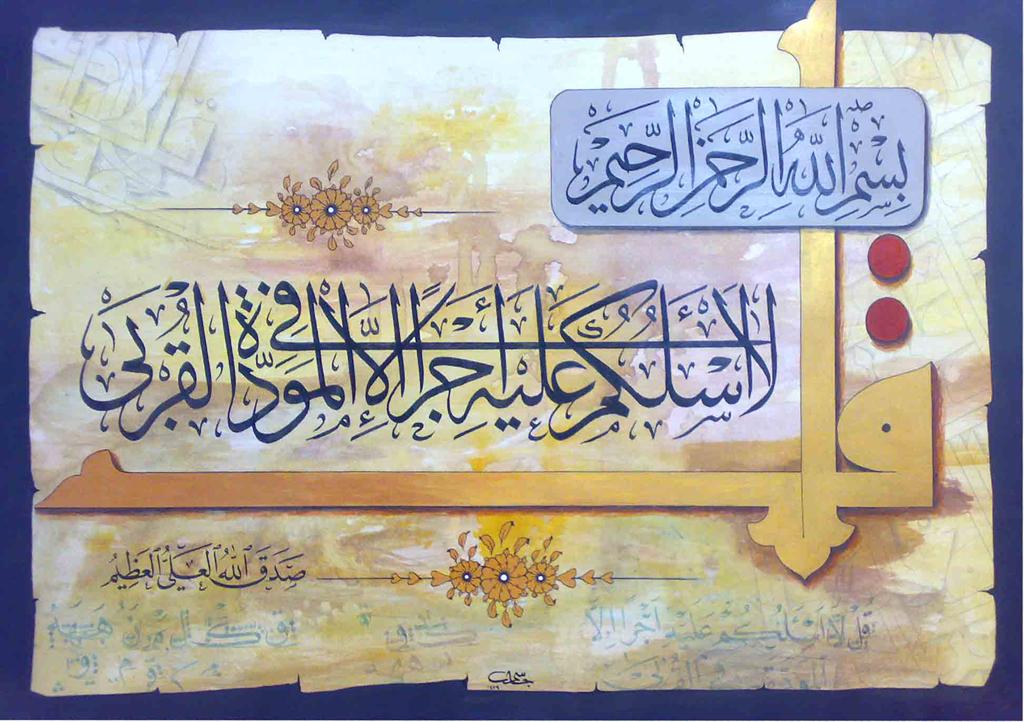 بِسْمِ اللَّهِ الرَّحْمَنِ الرَّحِيمِ
قل
لَا أَسْئَلُكُمْ عَلَيْهِ أَجْرًا إِلَّا الْمَوَدَّةَ فِي الْقُرْبَى
صَدَقَ اللهُ العَلِيُّ العَظِيمُ
قُلْ لَا أَسْئَلُكُمْ عَلَيْهِ أَجْرًا إِلَّا
المودة في القربى